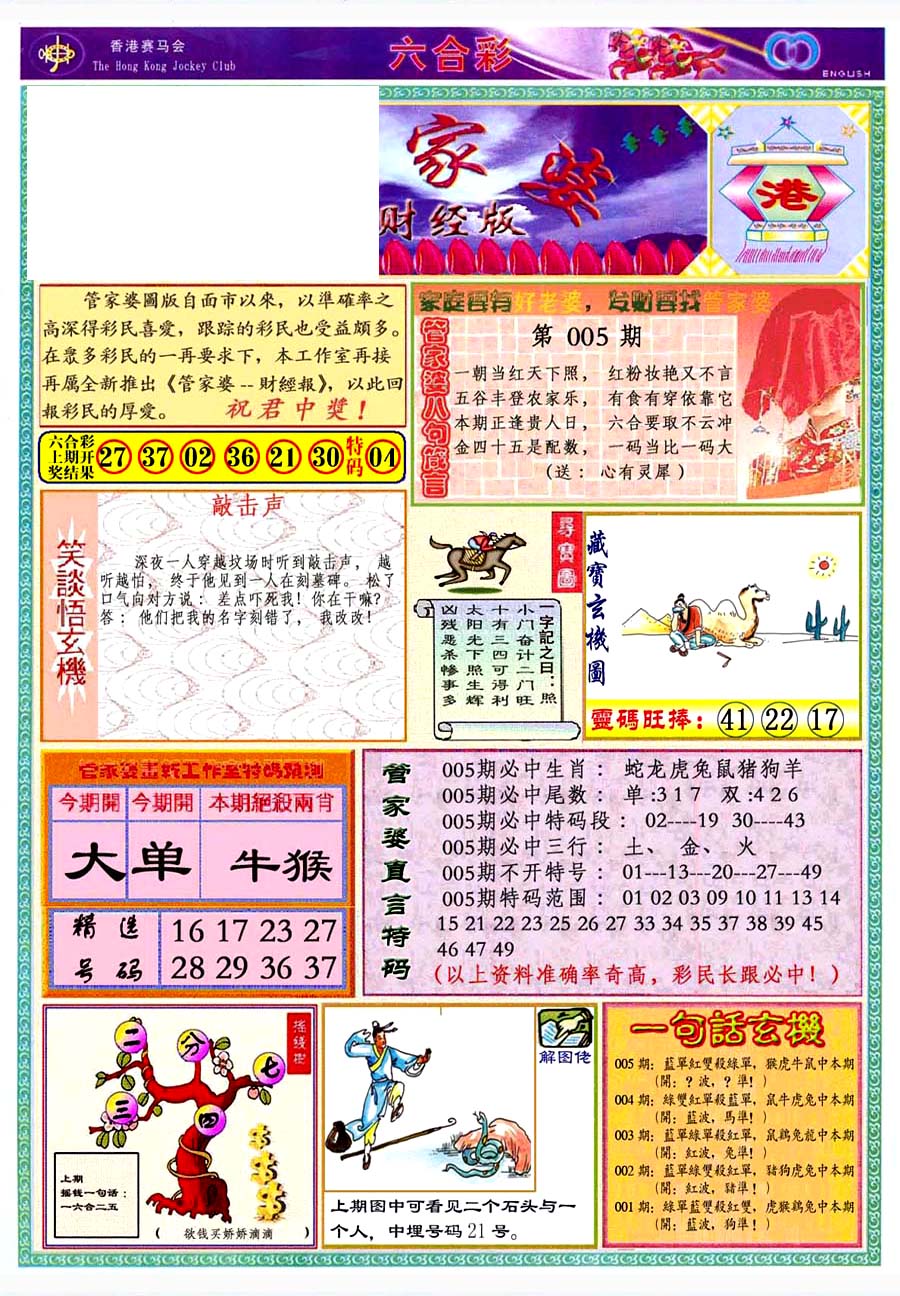 香港赛马会
The Hong Kong Jockey Club
六合彩
ENGLISH
家婆
财经版
港
管家婆圖版自面市以來，以準確率之
高深得彩民喜愛，跟踪的彩民也受益頗多。
在眾多彩民的一再要求下，本工作室再接
再厲全新推出《管家婆--財經報》，以此回
報彩民的厚愛。 祝君中獎！
六合彩
上期开
奖结果
27 37 02 36 21 30 特码 04
家庭要有好老婆，发财要找管家婆
管家婆八句箴言
第 005 期
一朝当红天下照， 红粉妆艳又不言
五谷丰登农家乐， 有食有穿依靠它
本期正逢贵人日， 六合要取不云冲
金四十五是配数， 一码当比一码大
（送： 心有灵犀）
笑談悟玄機
敲击声
深夜一人穿越坟场时听到敲击声， 越
听越怕， 终于他见到一人在刻墓碑。 松了
口气向对方说： 差点吓死我！你在干嘛？
答： 他们把我的名字刻错了， 我改改！
尋寶圖
一字記之曰：照
小门奋计二门旺
十有三四可得利
太阳先下照生辉
凶残恶杀惨事多
藏寶玄機圖
靈碼旺捧：41 22 17
管家婆畫新工作室特碼預測
今期開 今期開 本期絕殺兩肖
大 单 牛猴
精选
号码
16 17 23 27
28 29 36 37
管家婆直言特码
005期必中生肖： 蛇龙虎兔鼠猪狗羊
005期必中尾数： 单:3 1 7 双:4 2 6
005期必中特码段： 02----19 30----43
005期必中三行： 土、 金、 火
005期不开特号： 01---13---20---27---49
005期特码范围： 01 02 03 09 10 11 13 14
15 21 22 23 25 26 27 33 34 35 37 38 39 45
46 47 49
（以上资料准确率奇高，彩民长跟必中！）
摇钱樹
二
分
七
三
四
上期
摇钱一句话：
一六合二五
（ 欲钱买娇娇滴滴 ）
解图佬
上期图中可看见二个石头与一
个人，中埋号码21号。
一句話玄機
005期：藍單紅雙殺綠單，猴虎牛鼠中本期
（開：？波，？準！）
004期：綠雙紅單殺藍單，鼠牛虎兔中本期
（開：藍波，馬準！）
003期：藍單綠單殺紅單，鼠鷄兔龍中本期
（開：紅波，兔準！）
002期：藍單綠雙殺紅單，豬狗虎兔中本期
（開：紅波，豬準！）
001期：綠單藍雙殺紅雙，虎猴鷄兔中本期
（開：藍波，狗準！）